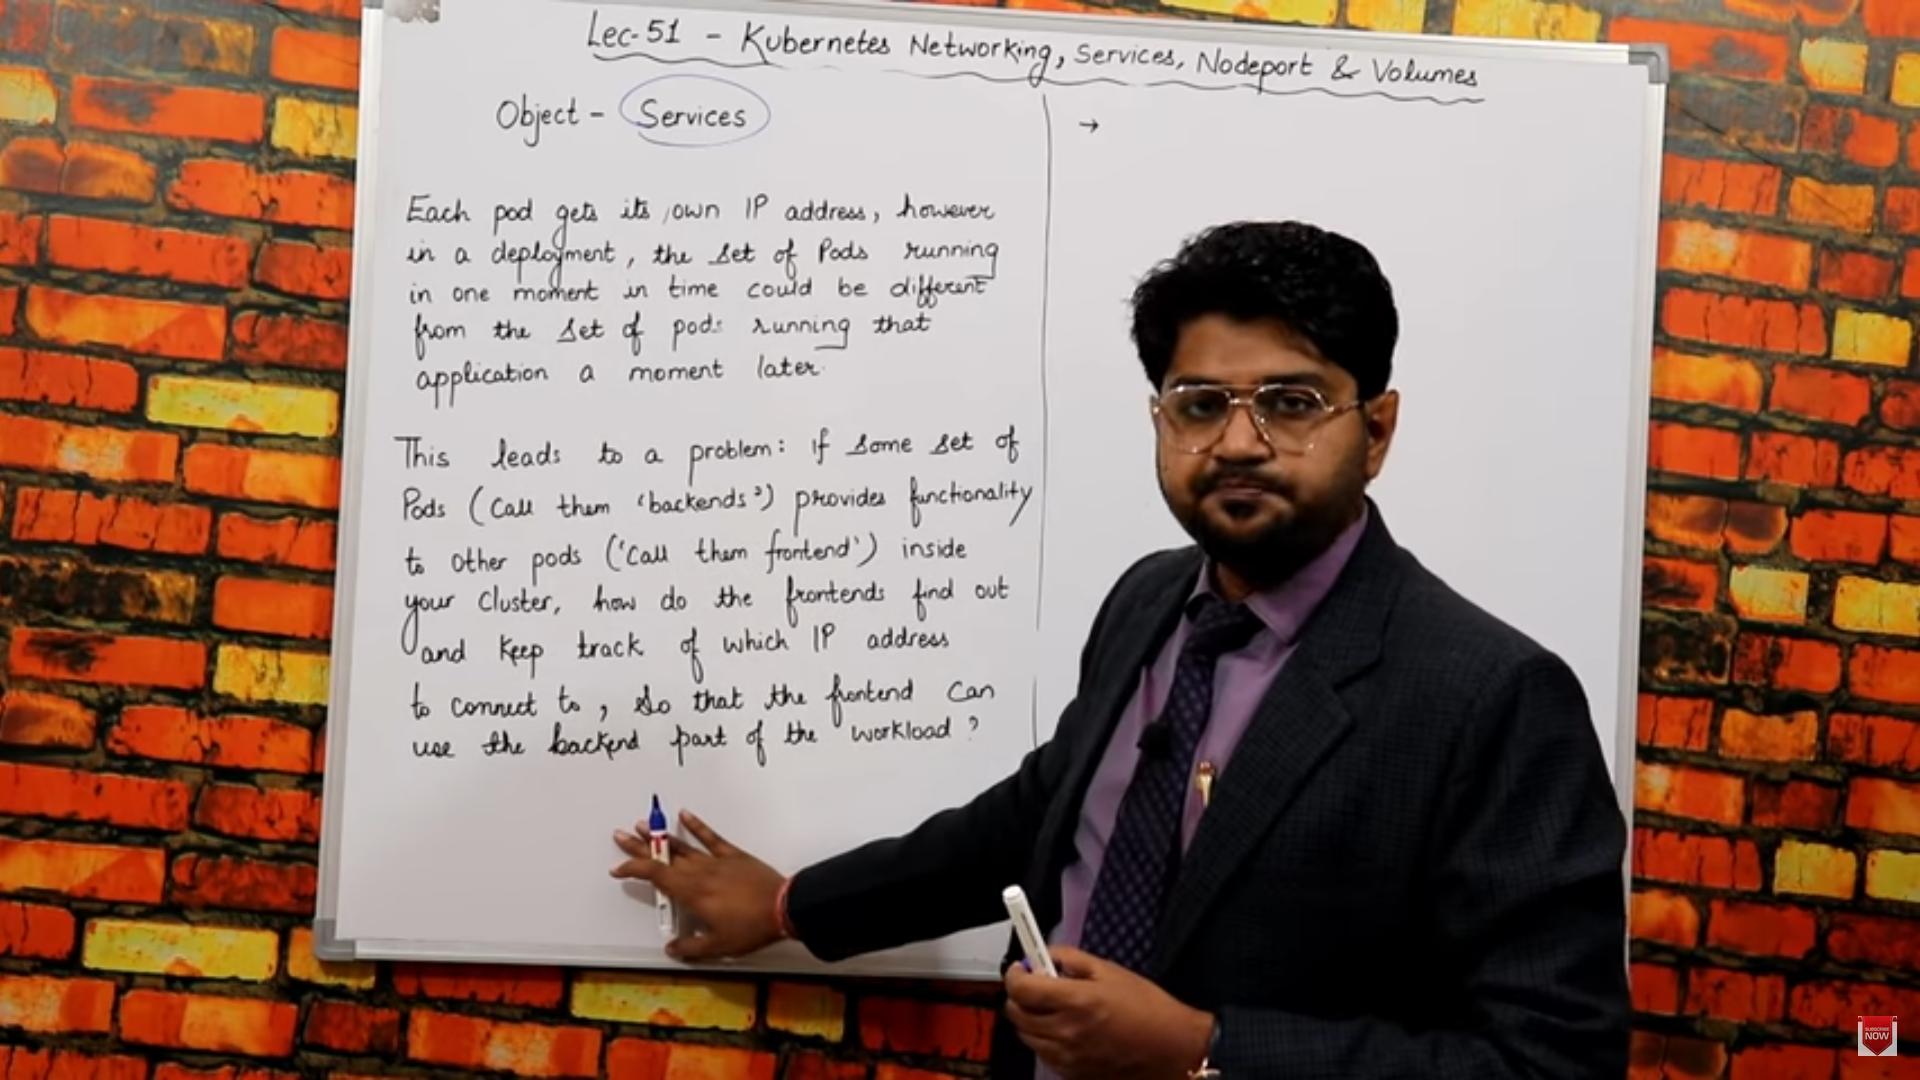 Lec-51 - Kubernetes Networking, Services, Nodeport & Volumes
Object - Services
→
Each pod gets its own IP address, however
in a deployment, the set of Pods running
in one moment in time could be different
from the set of pods running that
application a moment later.
This leads to a problem: if some set of
Pods (Call them 'backends') provides functionality
to other pods ('Call them frontend') inside
your Cluster, how do the frontends find out
and Keep track of which IP address
to connect to, So that the frontend Can
use the backend part of the workload?
SUBSCRIBE
NOW